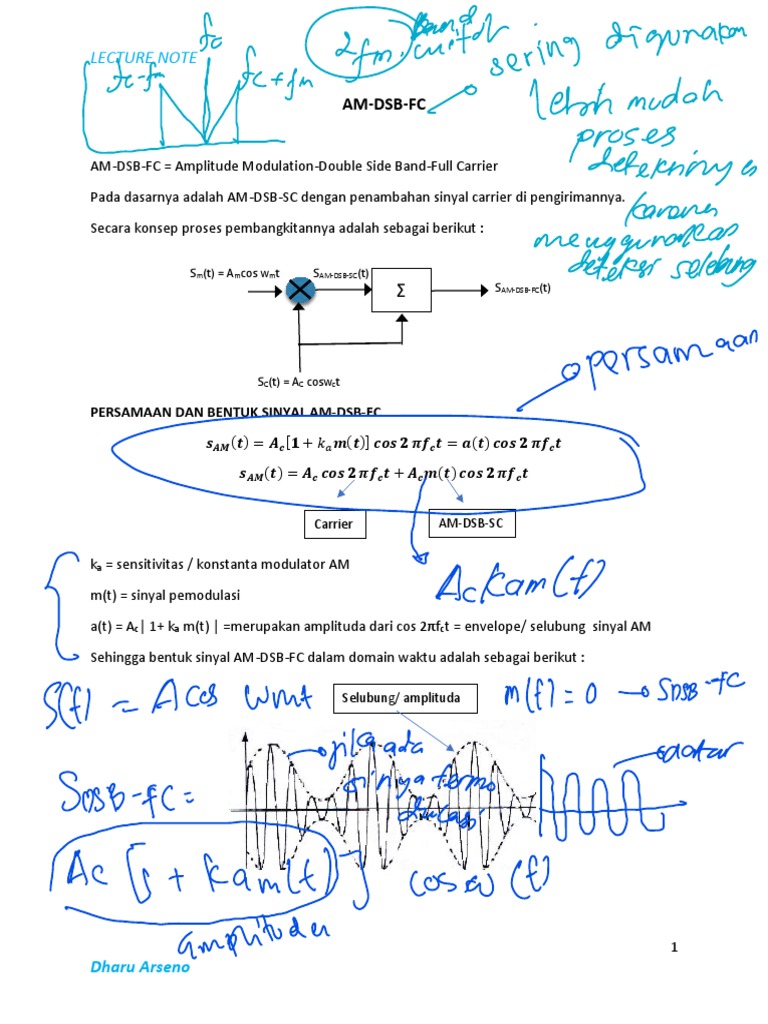 LECTURE NOTE
fc
fc-fm
fc+fm
2fm
Band
sering digunakan
AM-DSB-FC
lebih mudah
proses
karena
menggunakan
deteksi selubung
AM-DSB-FC = Amplitude Modulation-Double Side Band-Full Carrier
Pada dasarnya adalah AM-DSB-SC dengan penambahan sinyal carrier di pengirimannya.
Secara konsep proses pembangkitannya adalah sebagai berikut :
Sm(t) = Amcos wmt
SAM-DSB-SC(t)
Σ
SAM-DSB-FC(t)
Sc(t) = Ac coswct
persamaan
PERSAMAAN DAN BENTUK SINYAL AM-DSB-FC
sAM(t) = Ac[1 + kam(t)] cos 2πfct = a(t) cos 2πfct
sAM(t) = Ac cos 2πfct + Acm(t) cos 2πfct
Carrier
AM-DSB-SC
Ac kam(t)
ka = sensitivitas / konstanta modulator AM
m(t) = sinyal pemodulasi
a(t) = Ac| 1+ ka m(t) | =merupakan amplituda dari cos 2πfct = envelope/ selubung sinyal AM
Sehingga bentuk sinyal AM-DSB-FC dalam domain waktu adalah sebagai berikut :
S(t) = A cos wmt
Selubung/ amplituda
m(t) = 0 → SDSB-FC
jika ada
datar
SDSB-FC =
Ac [1 + kam(t)] cos w(t)
amplituda
1
Dharu Arseno